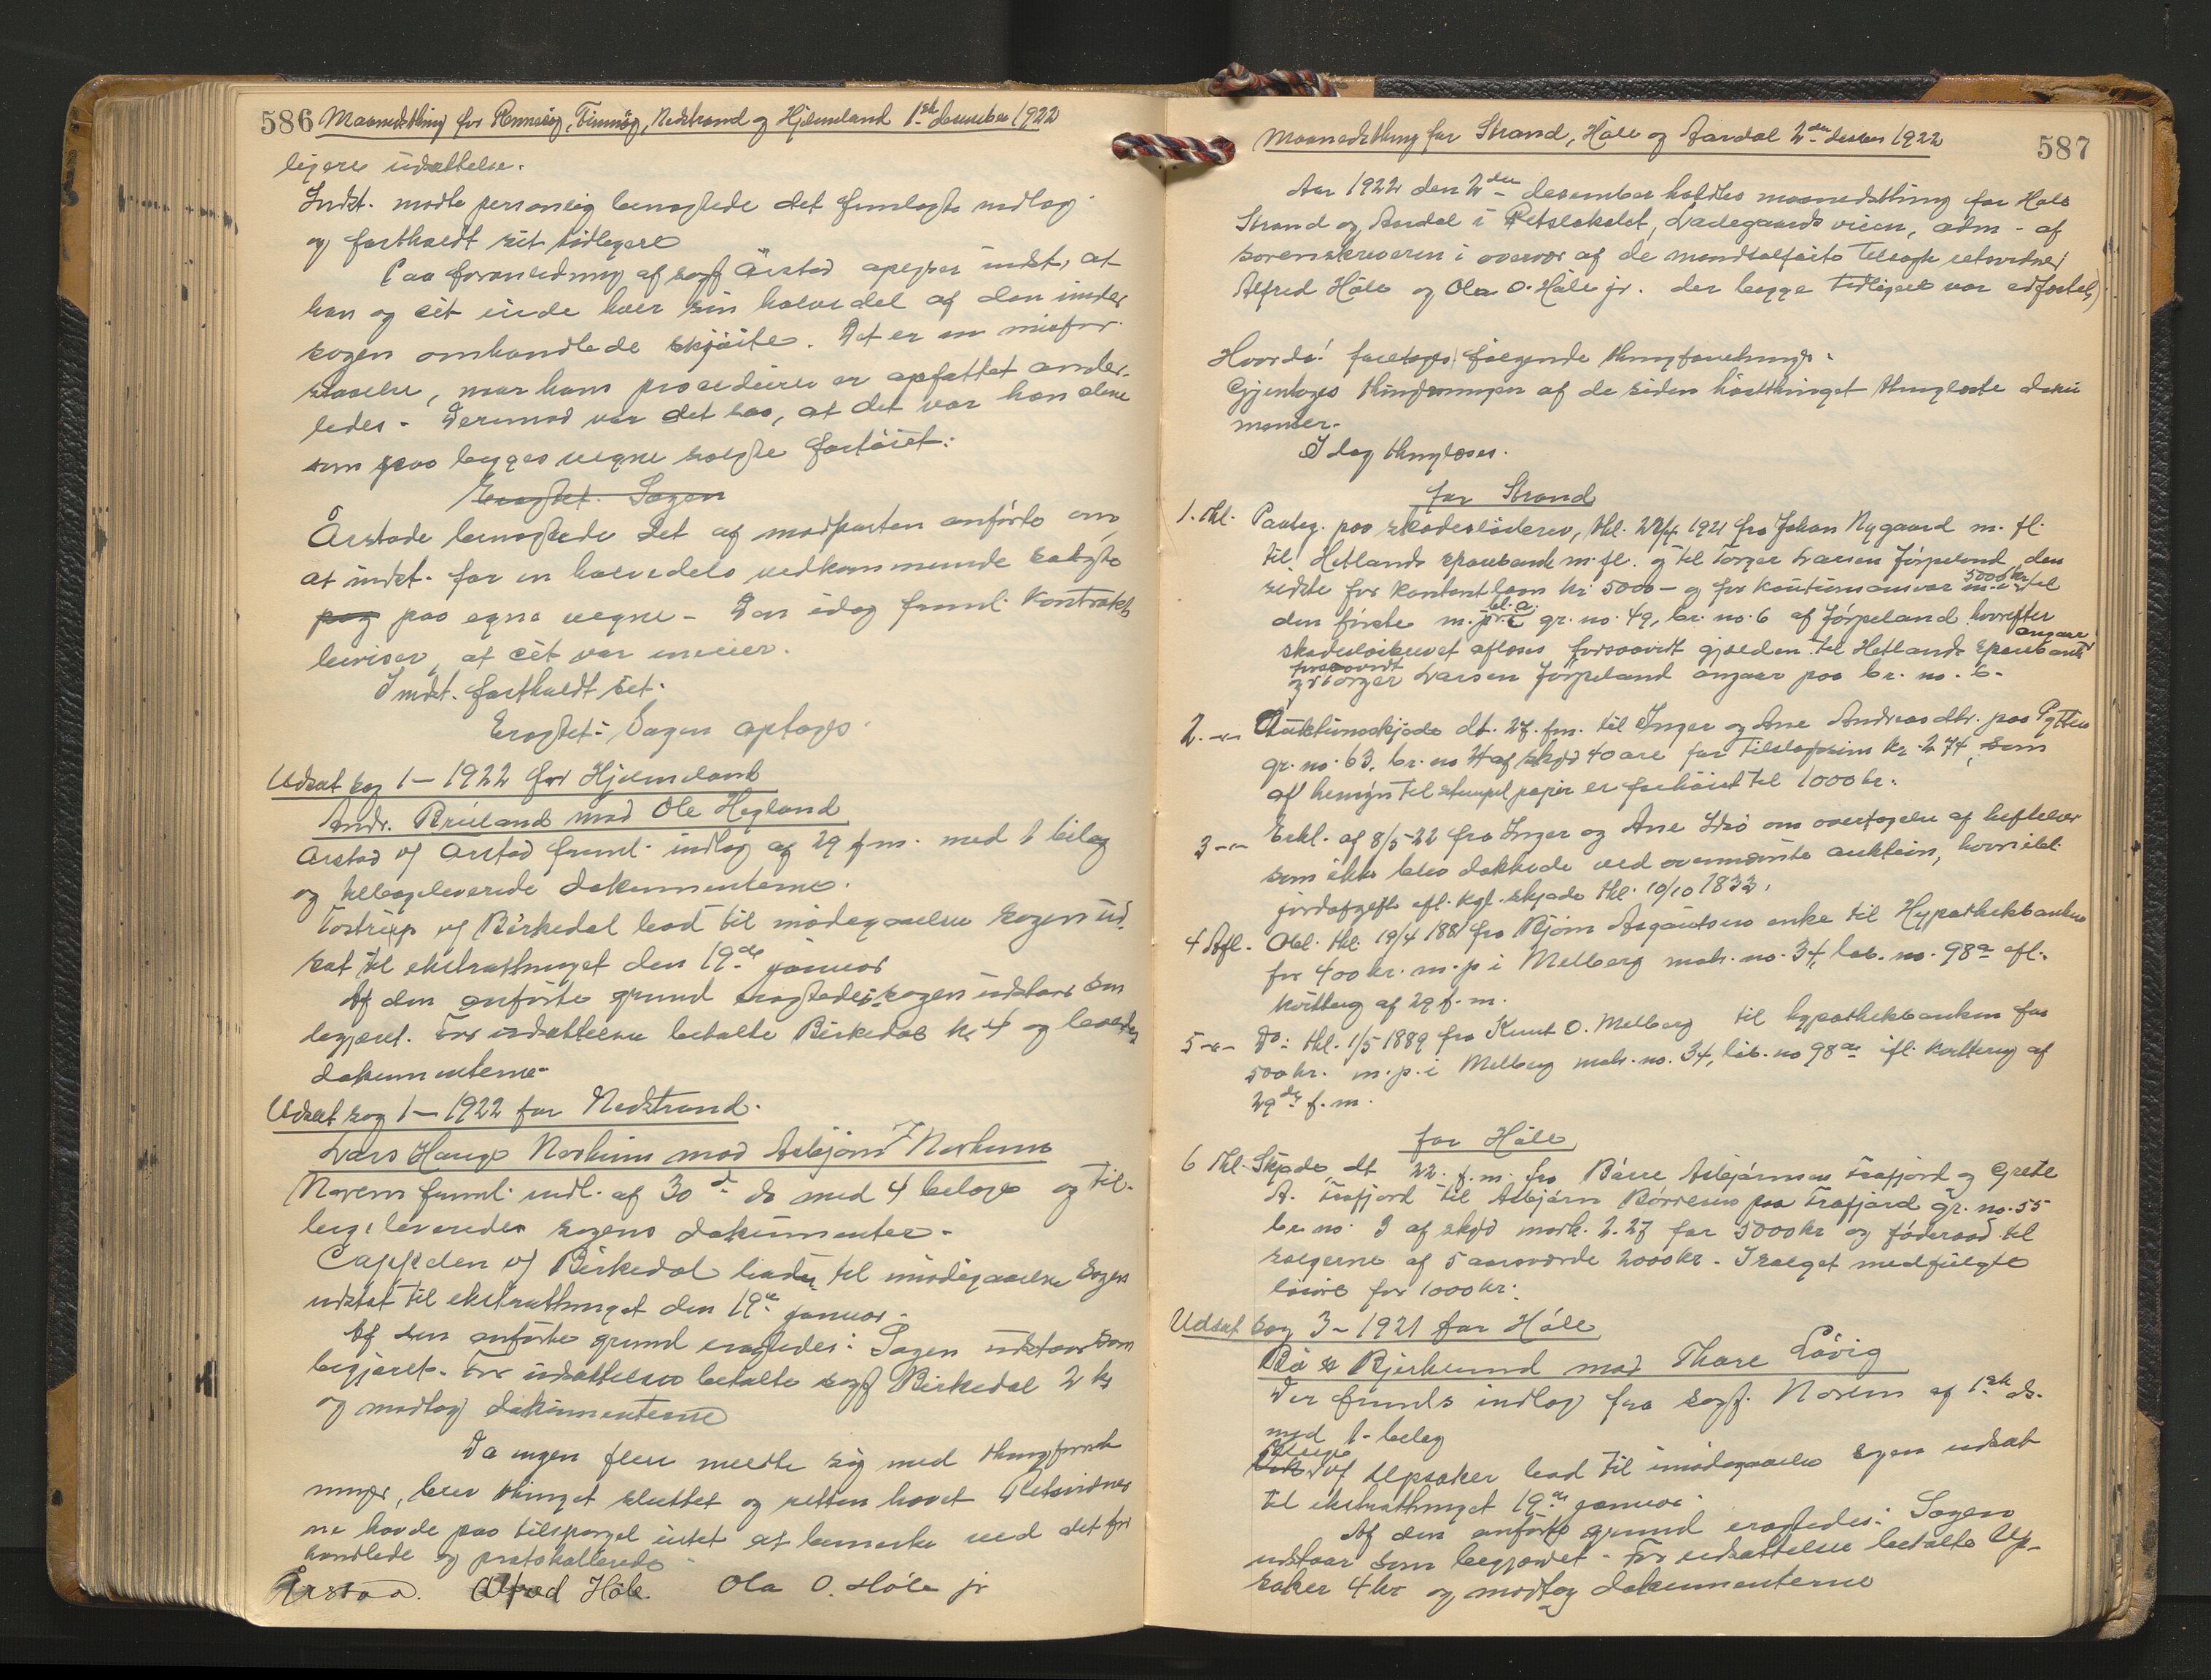 586 Maanedsthing for Rennesøy, Finnøy, Nedstrand og Hjelmeland 1ste december 1922
ligere udsættelse.
Indst. mødte personlig benegtede det fremlagte indlæg
og fastholdt sit tidligere
Paa foranledning af sagf. Årstad opgiver indst. at
han og cit. eiede hver sin halvedel af den under
sagen omhandlede skjøite. Det er en misfor-
staaelse, naar hans procedure er opfattet ander-
ledes. Derimod var det saa, at det var han alene
som paa begges vegne solgte fartøiet.
Eragtet: Sagen
Årstad benegtede det af modparten anførte om,
at indst. for en halvedels vedkommende solgte
paa egne vegne. Den idag freml. kontrakt
beviser, at cit. var eneeier.
Indst. fastholdt sit.
Eragtet: Sagen optages.
Udsat sag 1 – 1922 for Hjelmeland
Andr. Brueland mod Ole Hegland
Årstad v/ Årstad freml. indlæg af 29 f.m. med 1 bilag
og tilbageleverede dokumenterne.
Tostrup v/ Birkedal bad til imødegaaelse sagen ud-
sat til ekstrathinget den 19de januar
Af den anførte grund eragtedes: sagen udstaar som
begjæret. For udsættelsen betalte Birkedal kr 4 og
dokumenterne.
Udsat sag 1 – 1922 for Nedstrand.
Lars Hauge Norheim mod Asbjørn J Norheim
Norem freml. indl. af 30 d. ds med 4 bilage og til-
bageleverede sagens dokumenter.
Cappelen v/ Birkedal bad til imødegaaelse sagen
udsat til ekstrathinget den 19de januar.
Af den anførte grund eragtedes: Sagen udstaar som
begjæret. For udsættelsen betalte sagf Birkedal 2 kr
og modtog dokumenterne
Da ingen flere meldte sig med thingforret-
ninger, blev thinget sluttet og retten hævet. Retsvidner-
ne havde paa tilspørgsel intet at bemerke ved det for-
handlede og protokollerede
Årstad. Alfred Høle. Ola O. Høle jr
Maanedsthing for Strand, Høle og Aardal 2den decbr 1922 587
Aar 1922 den 2den desember holdtes maanedsthing for Høle
Strand og Aardal i Retslokalet, Ladegaardsveien, adm. af
sorenskriveren i overvær af de mandtalførte tilsagte retsvidner
Alfred Høle og Ola O. Høle jr. der begge tidligere var edfæstet)
Hvorda! foretoges følgende thingforretninger.
Gjentoges thinglæsningen af de siden høstthinget thinglæste doku
menter.
Idag thinglæses.
for Strand
1. thl. Paateg. paa skadesløsbrev, thl. 22/4 1921 fra Johan Nygaard m. fl.
til Hetlands sparebank m. fl. og til Torger Larsen Jørpeland, den
sidste for kontantlaan kr 5000 – og for kautionsansvar 5000 kr. til
den første m. p. bl. a. i gr. no. 49, br. no. 6 af Jørpeland, hvorefter
skadesløsbrevet afløses forsaavidt gjælden til Hetlands Sparebank angaar
og forsaavidt Torger Larsen Jørpeland angaar paa br. no. 6.
2. –"– Auktionsskjøde dt. 27. f.m. til Inger og Ane Andreasdtr. paa
gr. no. 63, br. no 4 af skyld 40 øre for tilslagssum kr. 274, som
af hensyn til stempelpapir er forhøiet til 1000 kr.
3 –"– Erkl. af 8/5-22 fra Inger og Ane Idsø om overtagelse af heftelser
som ikke blev dækkede ved ovennævnte auktion, hvoribl.
jordafgift ifl. kgl. skjøde thl. 10/10 1833.
4 Afl. Obl. thl. 19/4 1881 fra Bjørn Asgautsens enke til Hypothekbanken
for 400 kr. m. p i Melberg matr. no. 34, løb. no. 98a ifl.
kvittering af 29 f. m.
5 –"– Do: thl. 1/5 1889 fra Knut O. Melberg til hypothekbanken for
500 kr. m. p. i Melberg matr. no. 34, løb. no 98a ifl. kvittering af
29de f. m.
for Høle
6 thl. Skjøde, dt 22. f. m. fra Børre Asbjørnsen Frafjord og Grete
A. Frafjord til Asbjørn Børresen paa Frafjord gr. no. 55
br no. 3 af skyld mark. 2.27 for 5000 kr og føderaad til
sælgerne af 5 aarsværde 2000 kr. I salget medfulgte
løsøre for 1000 kr.
Udsat sag 3 – 1921 for Høle
Bø & Bjerkelund mod Thore Løvig
Der fremls indlæg fra sagf. Norem af 1ste ds.
med 1 bilag
v/ Upsaker bad til imødegaaelse sagen udsat
til ekstrathinget 19de januar.
Af den anførte grund eragtedes: Sagen
udstaar som begjæret. For udsættelse betalte Up-
saker 4 kr og modtog dokumenterne